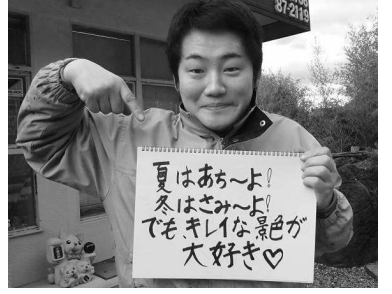 87-2119
夏はあち〜よ!
冬はさみ〜よ!
でも、キレイな景色が
大好き♡